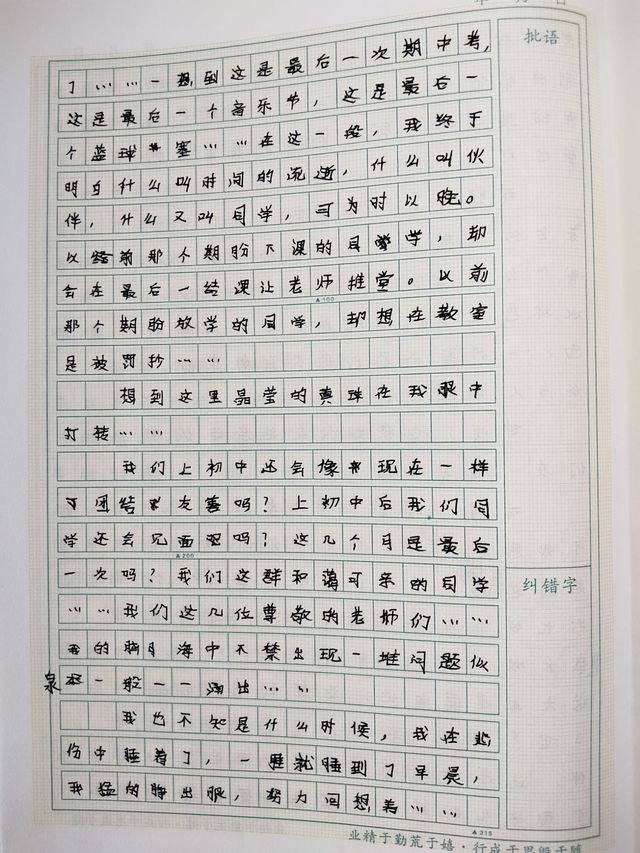 批语
了……一想到这是最后一次期中考，
这是最后一个音乐节，这是最后一
个蓝球塞……在这一段，我终于
明白什么叫时间的流逝，什么叫伙
伴，什么又叫同学，可为时以晚。
以前那个期盼下课的同学，却
会在最后一结课让老师推堂。以前
▲100
那个期盼放学的同学，却想在教室
是被罚抄……
想到这里晶莹的真珠在我眼中
打转……
我们上初中还会像现在一样
团结友善吗？上初中后我们同
学还会见面吗？这几个月是最后
▲200
一次吗？我们这群和蔼可亲的同学
……我们这几位尊敬的老师们……
我的脑海中不禁出现一堆问题似
泉一般一一涌出……
我也不知是什么时候，我在悲
伤中睡着了，一睡就睡到了早晨，
我猛的睁出眼，努力回想着……
▲315
纠错字
业精于勤荒于嬉·行成于思毁于随